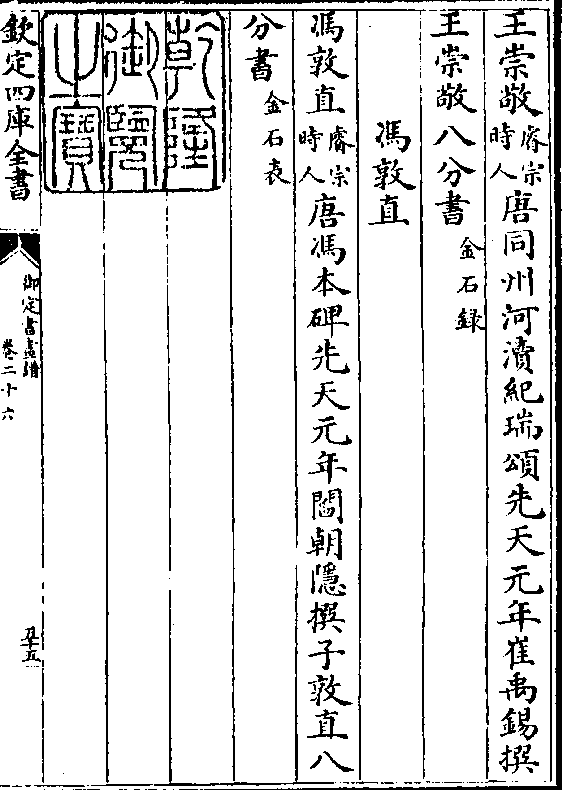 王崇敬睿宗時人唐同州河瀆紀瑞頌先天元年崔禹錫撰
王崇敬八分書金石録
馮敦直
馮敦直睿宗時人唐馮本碑先天元年閻朝隱撰子敦直八
分書金石表
乾隆御覽之寶
欽定四庫全書
御定書畫譜
卷二十六
五十五